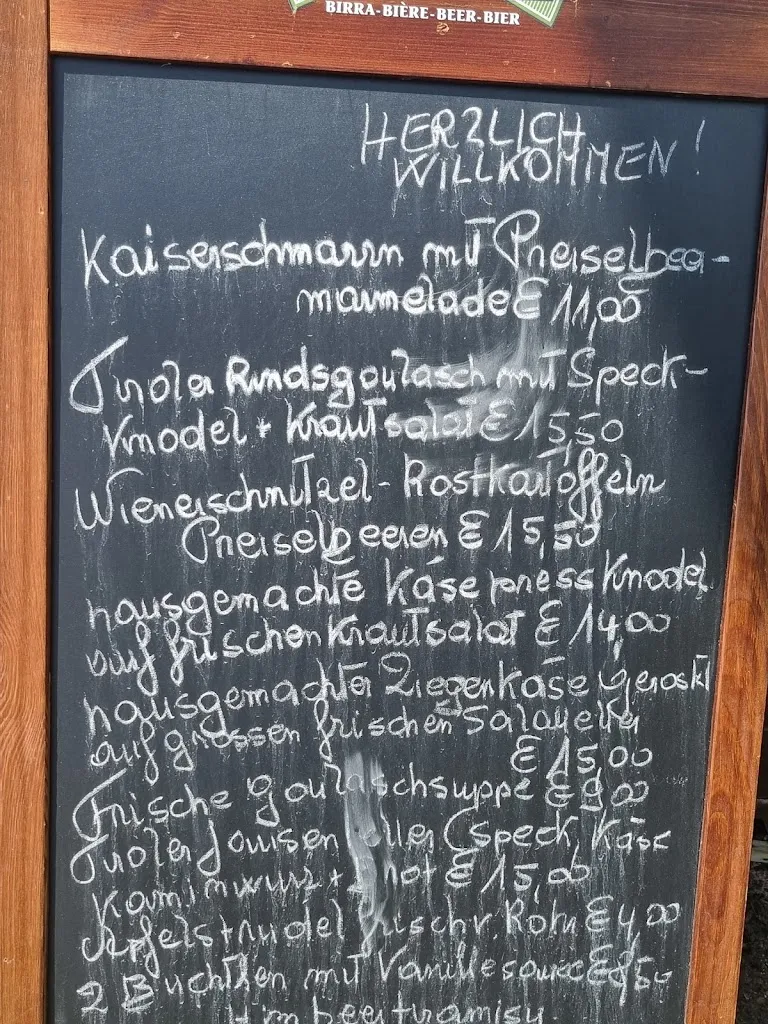 BIRRA-BIÈRE-BEER-BIER
HERZLICH
WILLKOMMEN!
Kaiserschmarrn mit Preiselbeer-
marmelade € 11,00
Tiroler Rindsgoulasch mit Speck-
Knödel + Krautsalat € 15,50
Wienerschnitzel - Rostkartoffeln
Preiselbeeren € 15,50
hausgemachte Käsepress Knödel
auf frischen Krautsalat € 14,00
hausgemachter Ziegenkäse geröstet
auf grossen frischen Salatteller
€ 15,00
Frische Goulaschsuppe € 9,00
Tiroler Jausen teller (speck, Käse
Kaminwurz + Brot € 15,00
Apfelstrudel frisch v. Rohr € 4,00
2 Buchtlen mit Vanillesauce
Himbeertiramisu